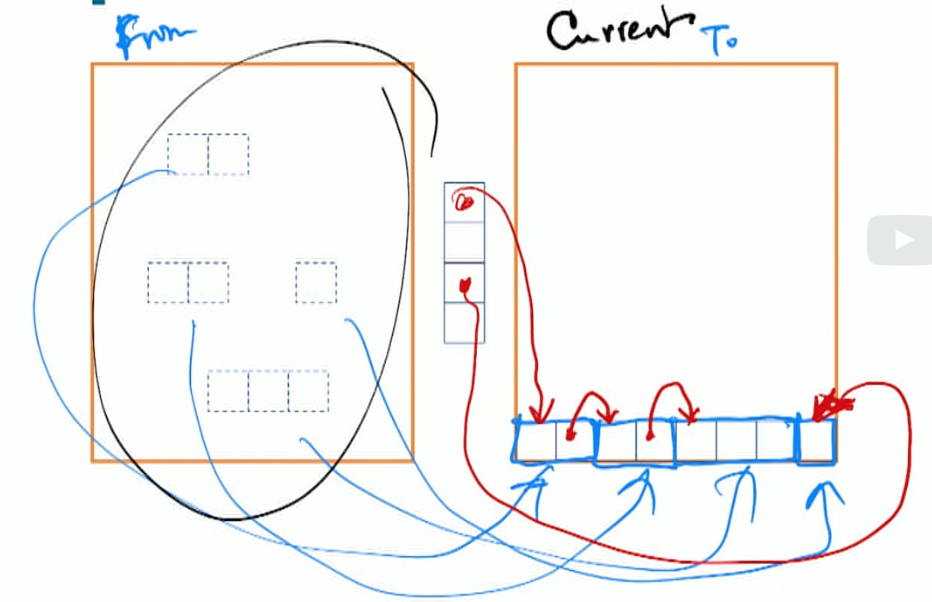 From
Current To